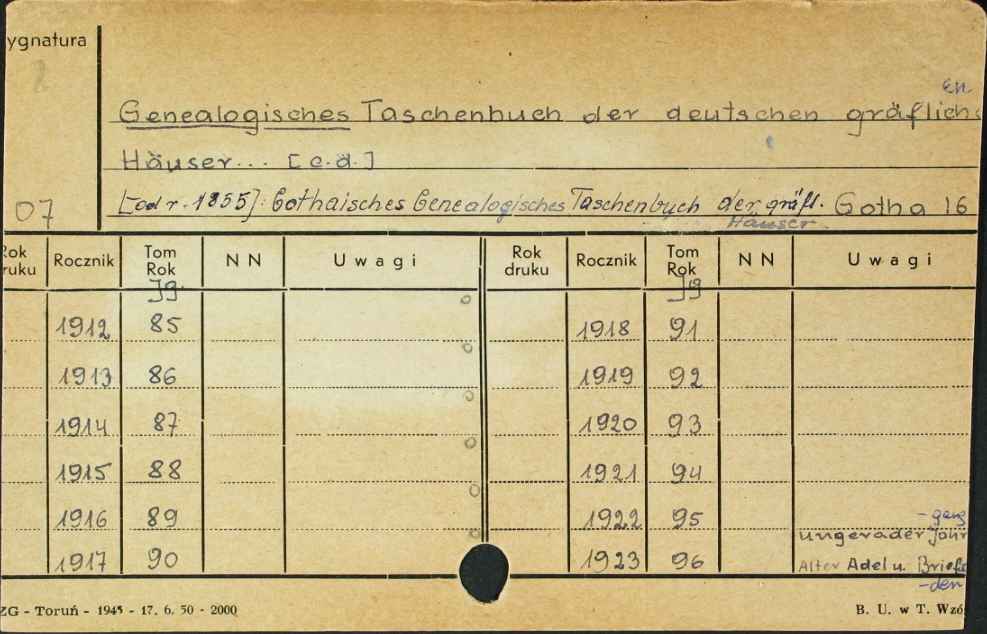 ygnatura
en
Genealogisches Taschenbuch der deutschen gräflich
Häuser... [c.d.]
07 [od r. 1855]: Gothaisches Genealogisches Taschenbuch der gräfl. Gotha 16
Häuser.
Rok druku Rocznik Tom Rok NN Uwagi Rok druku Rocznik Tom Rok NN Uwagi
Jg. Jg
1912 85 1918 91
1913 86 1919 92
1914 87 1920 93
1915 88 1921 94
1916 89 1922 95 -gang
ungerader Jahr
1917 90 1923 96 Alter Adel u. Briefa
-den
ZG - Toruń - 1945 - 17. 6. 50 - 2000 B. U. w T. Wzó